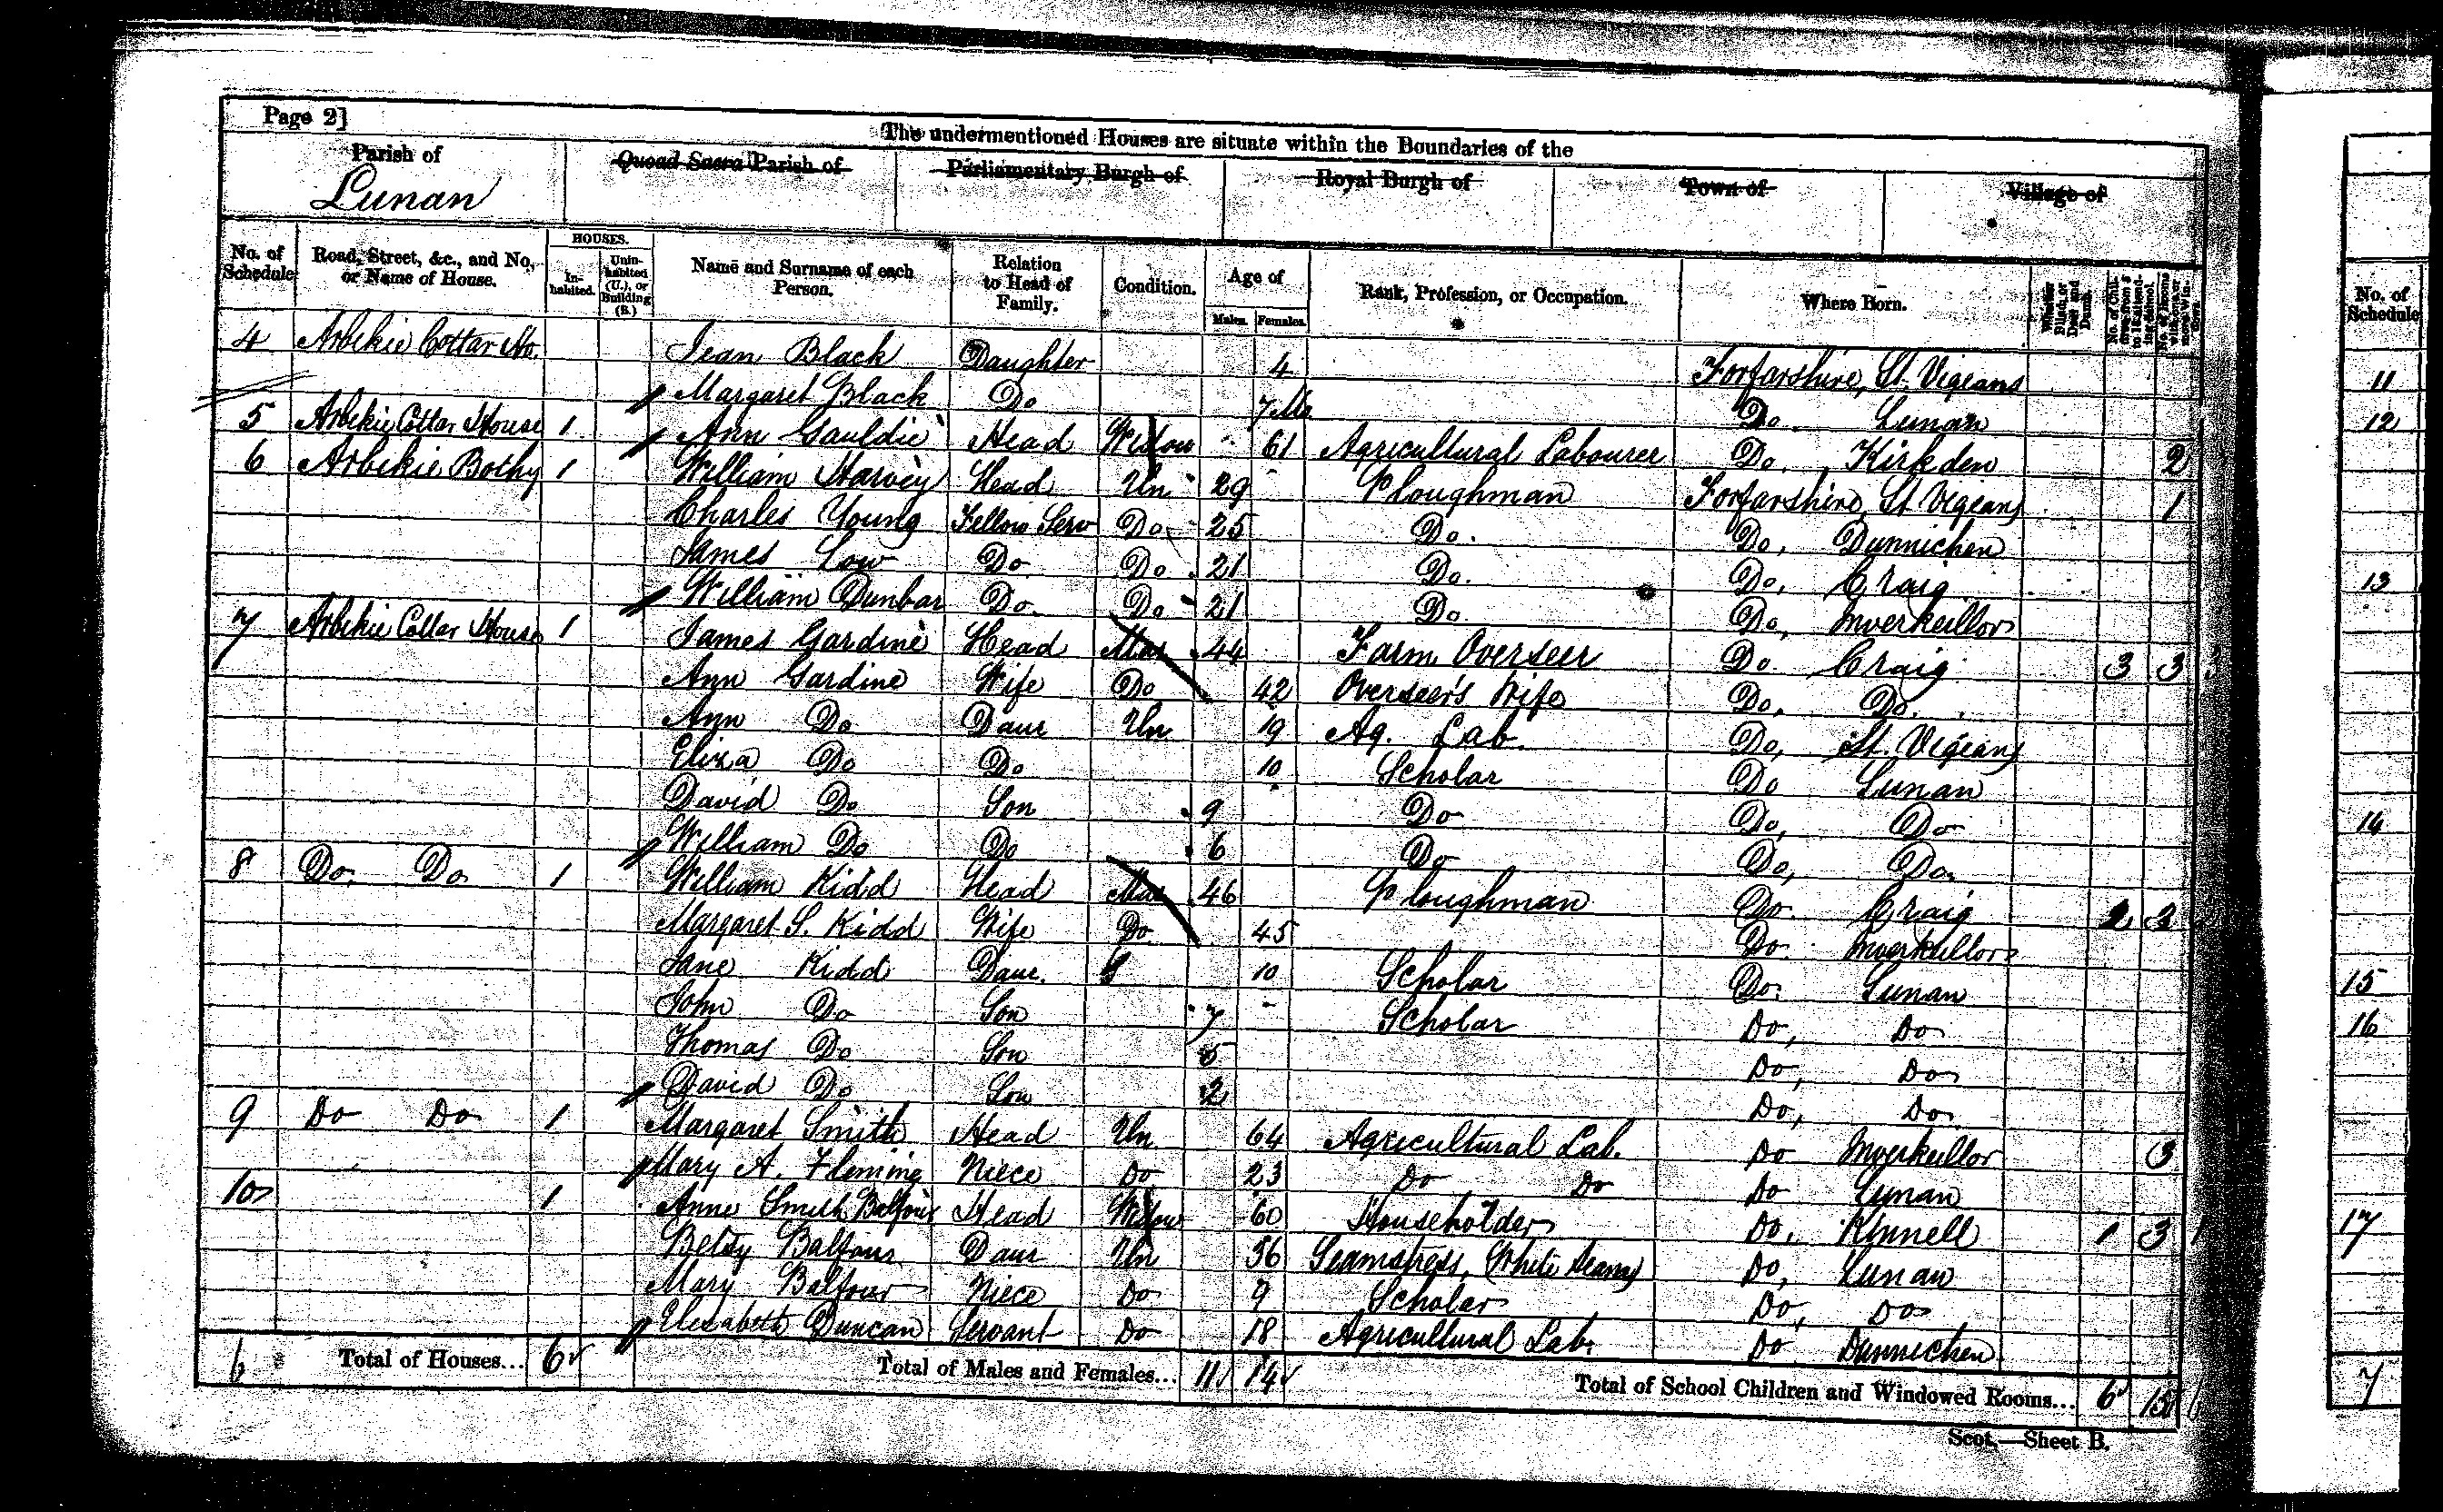 Page 2]
The undermentioned Houses are situate within the Boundaries of the
Parish of Quoad Sacra Parish of Parliamentary Burgh of Royal Burgh of Town of Village of
Lunan
No. of Schedule Road, Street, &c., and No, or Name of House. HOUSES. In-habited. Unin-habited (U.), or Building (B.) Name and Surname of each Person. Relation to Head of Family. Condition. Age of Males. Females. Rank, Profession, or Occupation. Where Born. Whether Blind, or Deaf and Dumb. No. of Schedule
4 Arbekie Cottar Ho. Jean Black Daughter 4 Forfarshire, St. Vigeans 11
Margaret Black Do 7 Mo Do. Lunan 12
5 Arbekie Cottar House 1 Ann Gauldie Head Widow 61 Agricultural Labourer Do. Kirkden 2
6 Arbekie Bothy 1 William Harvey Head Un 29 Ploughman Forfarshire, St. Vigeans 1
Charles Young Fellow Serv Do 25 Do. Do, Dunnichen
James Low Do Do 21 Do. Do, Craig 13
William Dunbar Do Do 21 Do Do, Inverkeillor
7 Arbekie Cottar House 1 James Gardine Head Mar 44 Farm Overseer Do Craig 3 3
Ann Gardine Wife Do 42 Overseer's Wife Do, Do.
Ann Do Daur Un 19 Ag. Lab. Do, St. Vigeans
Eliza Do Do 10 Scholar Do Lunan
David Do Son 9 Do Do, Do 14
William Do Do 6 Do Do, Do,
8 Do. Do 1 William Kidd Head Mar 46 Ploughman Do. Craig 2 3
Margaret S. Kidd Wife Do 45 Do. Inverkeillor
Jane Kidd Daur. 10 Scholar Do. Lunan 15
John Do Son 7 Scholar Do, Do 16
Thomas Do Son 5 Do, Do
David Do Son 2 Do, Do
9 Do Do 1 Margaret Smith Head Un 64 Agricultural Lab. Do Inverkeillor 3
Mary A. Fleming Niece Do 23 Do Do Do Lunan
10 1 Anne Smith Balfour Head Widow 60 Householder Do, Kinnell 1 3 17
Betsy Balfour Daur Un 36 Seamstress, (White Seams) Do, Lunan
Mary Balfour Niece Do 9 Scholar Do, Do
Elizabeth Duncan Servant Do 18 Agricultural Lab. Do Dunnichen
6 Total of Houses... 6 Total of Males and Females... 11 14 Total of School Children and Windowed Rooms... 6 15 7
Scot.—Sheet B.